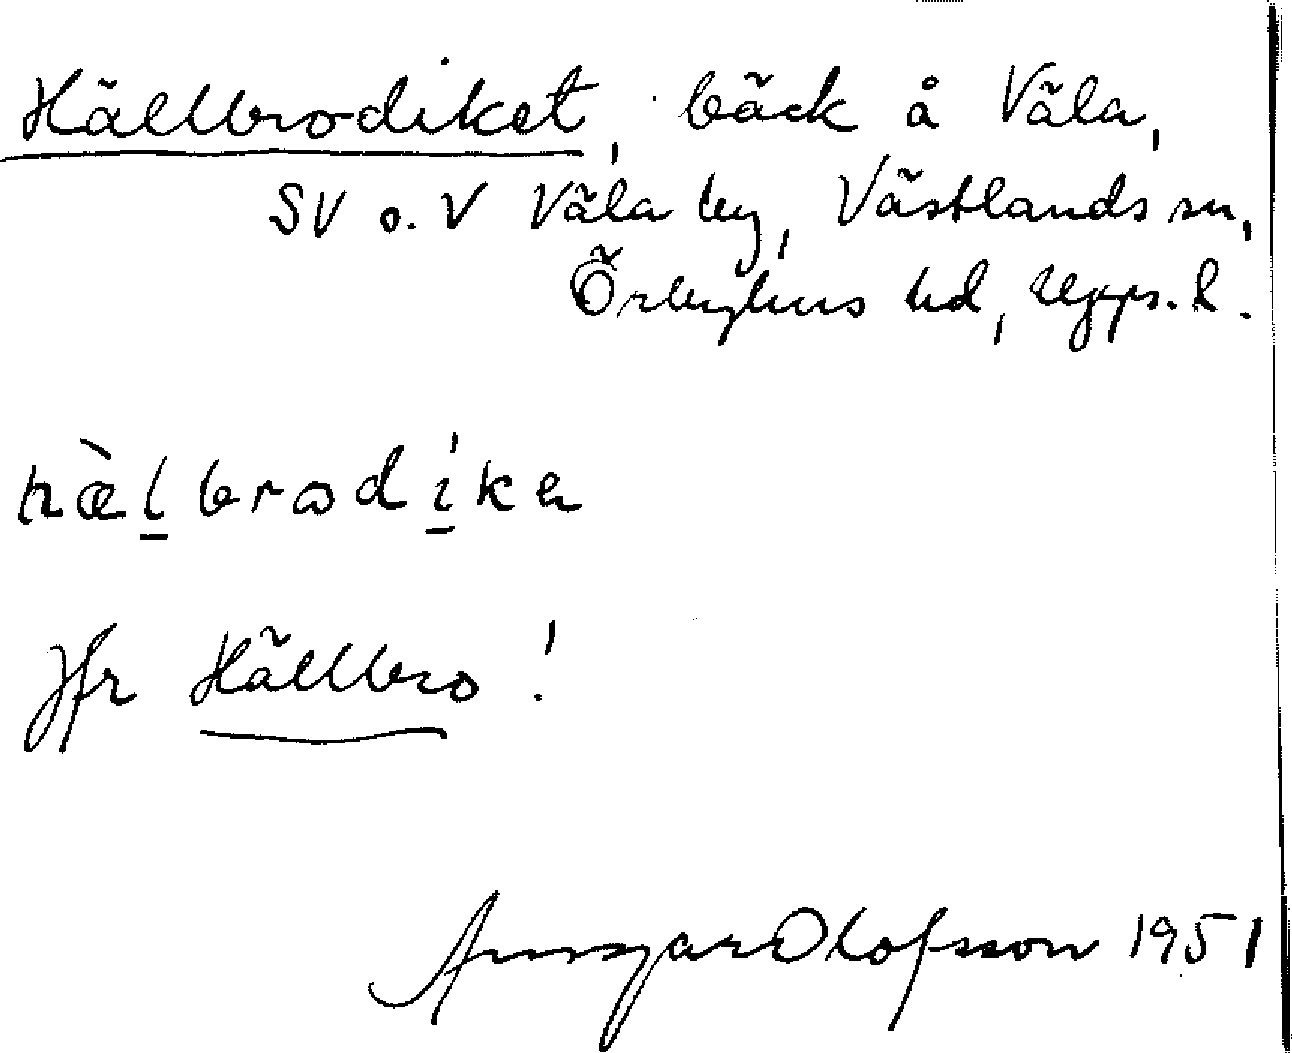 Hällbrodiket, bäck å Väla,
SV o. V Väla by, Västlands sn,
Örbyhus hd, Upps. l.
hæ̀l̲brodí̲ka
Jfr Hällbro!
Ansgar Olofsson 1951